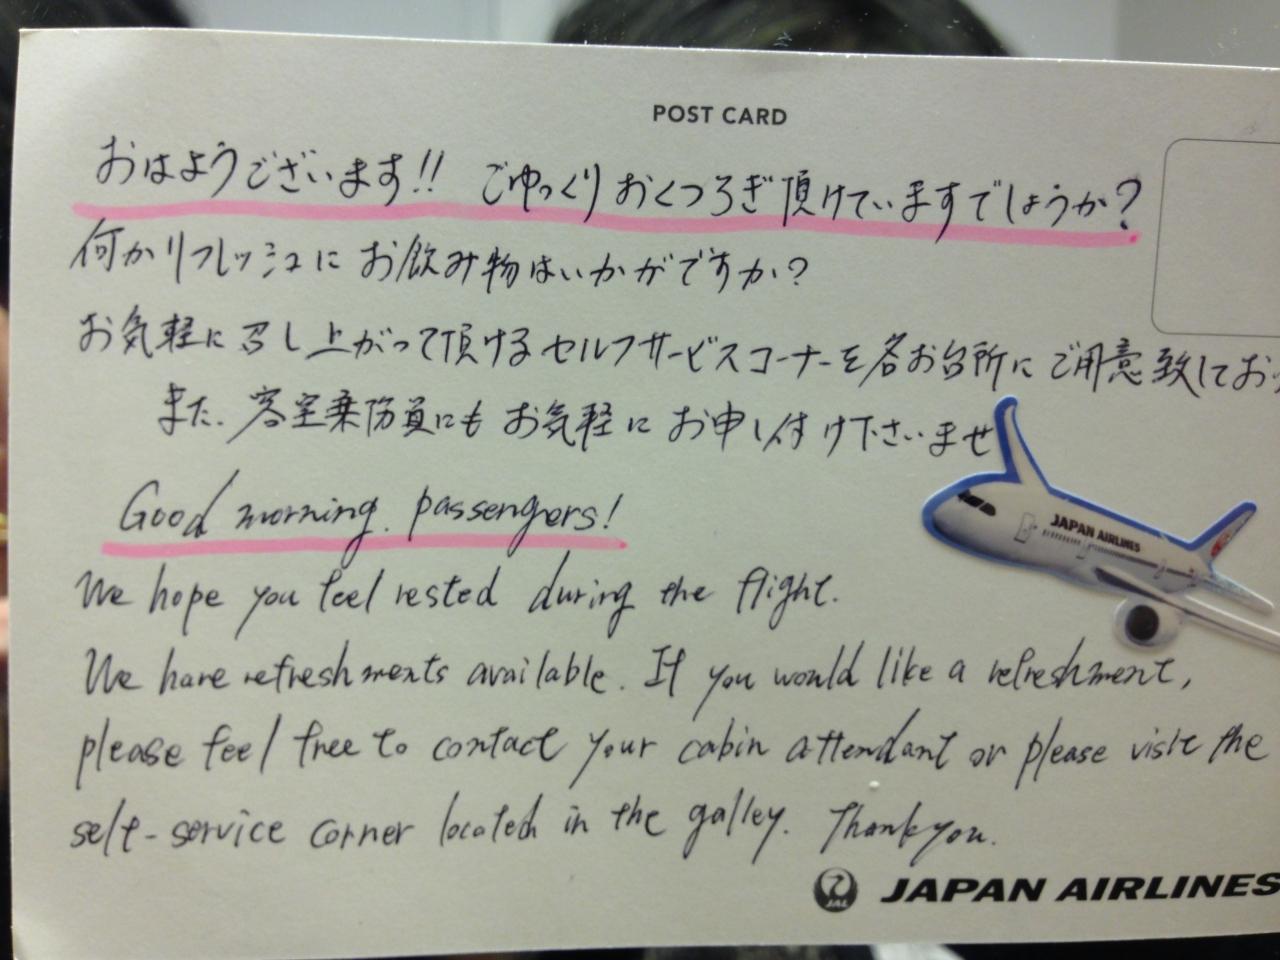 POST CARD
おはようございます!! ごゆっくりおくつろぎ頂けていますでしょうか?
何かリフレッシュにお飲み物はいかがですか?
お気軽に召し上がって頂けるセルフサービスコーナーを各お台所にご用意致してお
また、客室乗務員にもお気軽にお申し付け下さいませ
Good morning, passengers!
We hope you feel rested during the flight.
We have refreshments available. If you would like a refreshment,
please feel free to contact your cabin attendant or please visit the
self-service corner located in the galley. Thank you.
JAPAN AIRLINES
JAL JAPAN AIRLINES